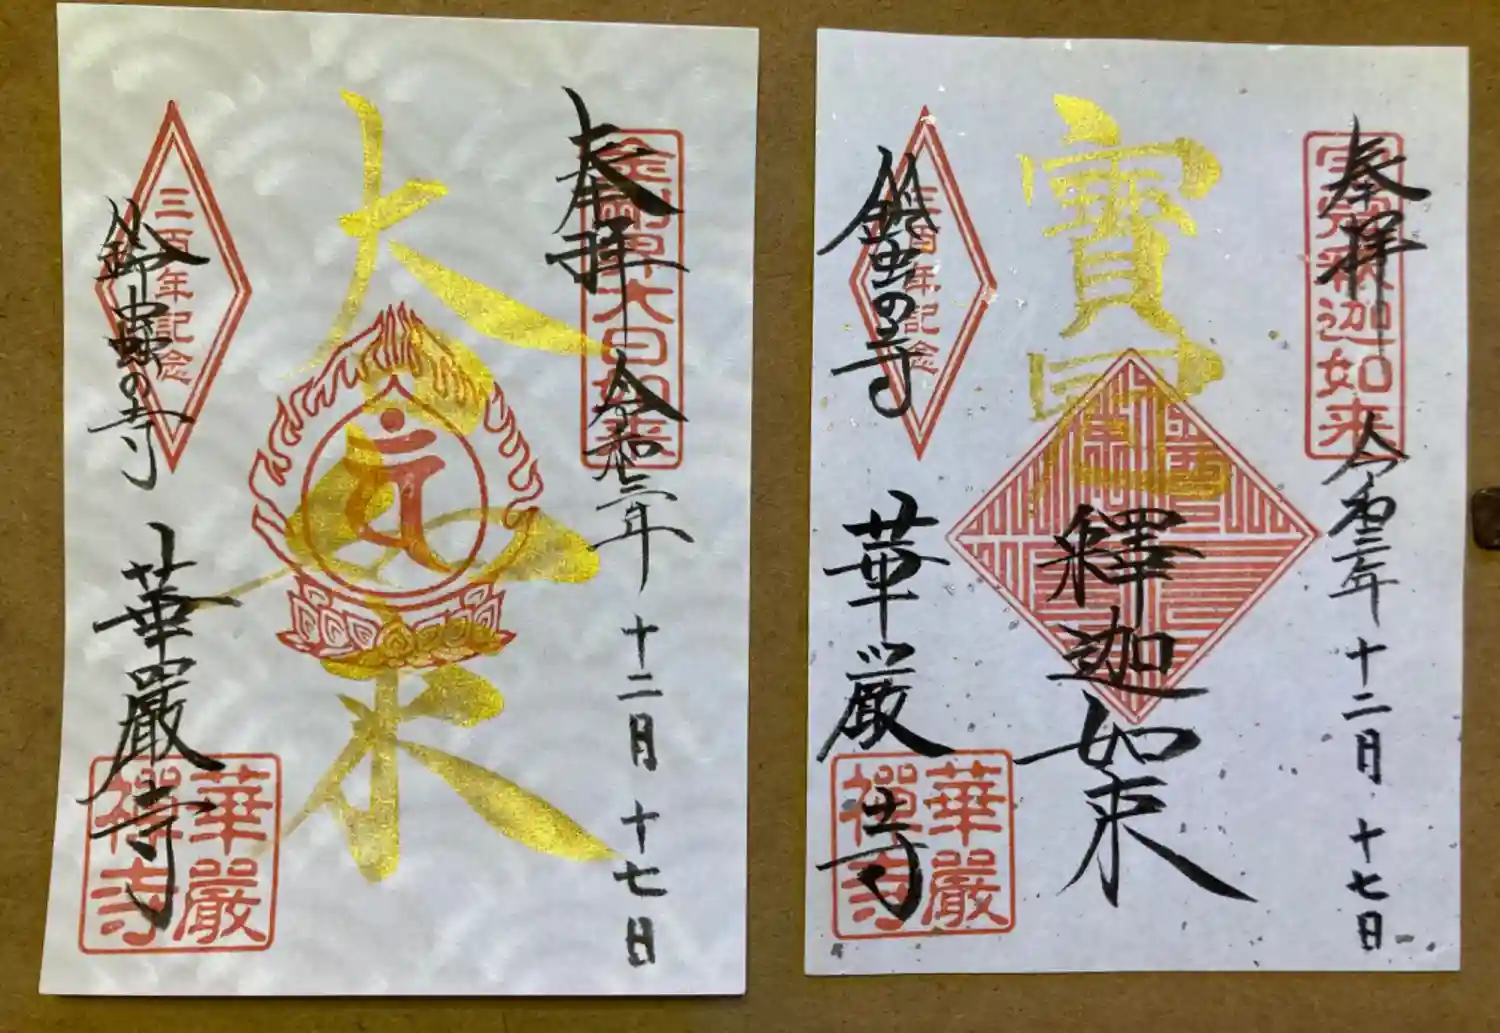 奉拝 令和三年 十二月 十七日
金剛界大日如来
大日如来
三百年記念
鈴蟲の寺
華嚴寺
華嚴
禅寺
奉拝 令和三年 十二月 十七日
宝冠釈迦如来
寶冠
釋迦如来
三百年記念
鈴虫の寺
華厳寺
華嚴
禅寺